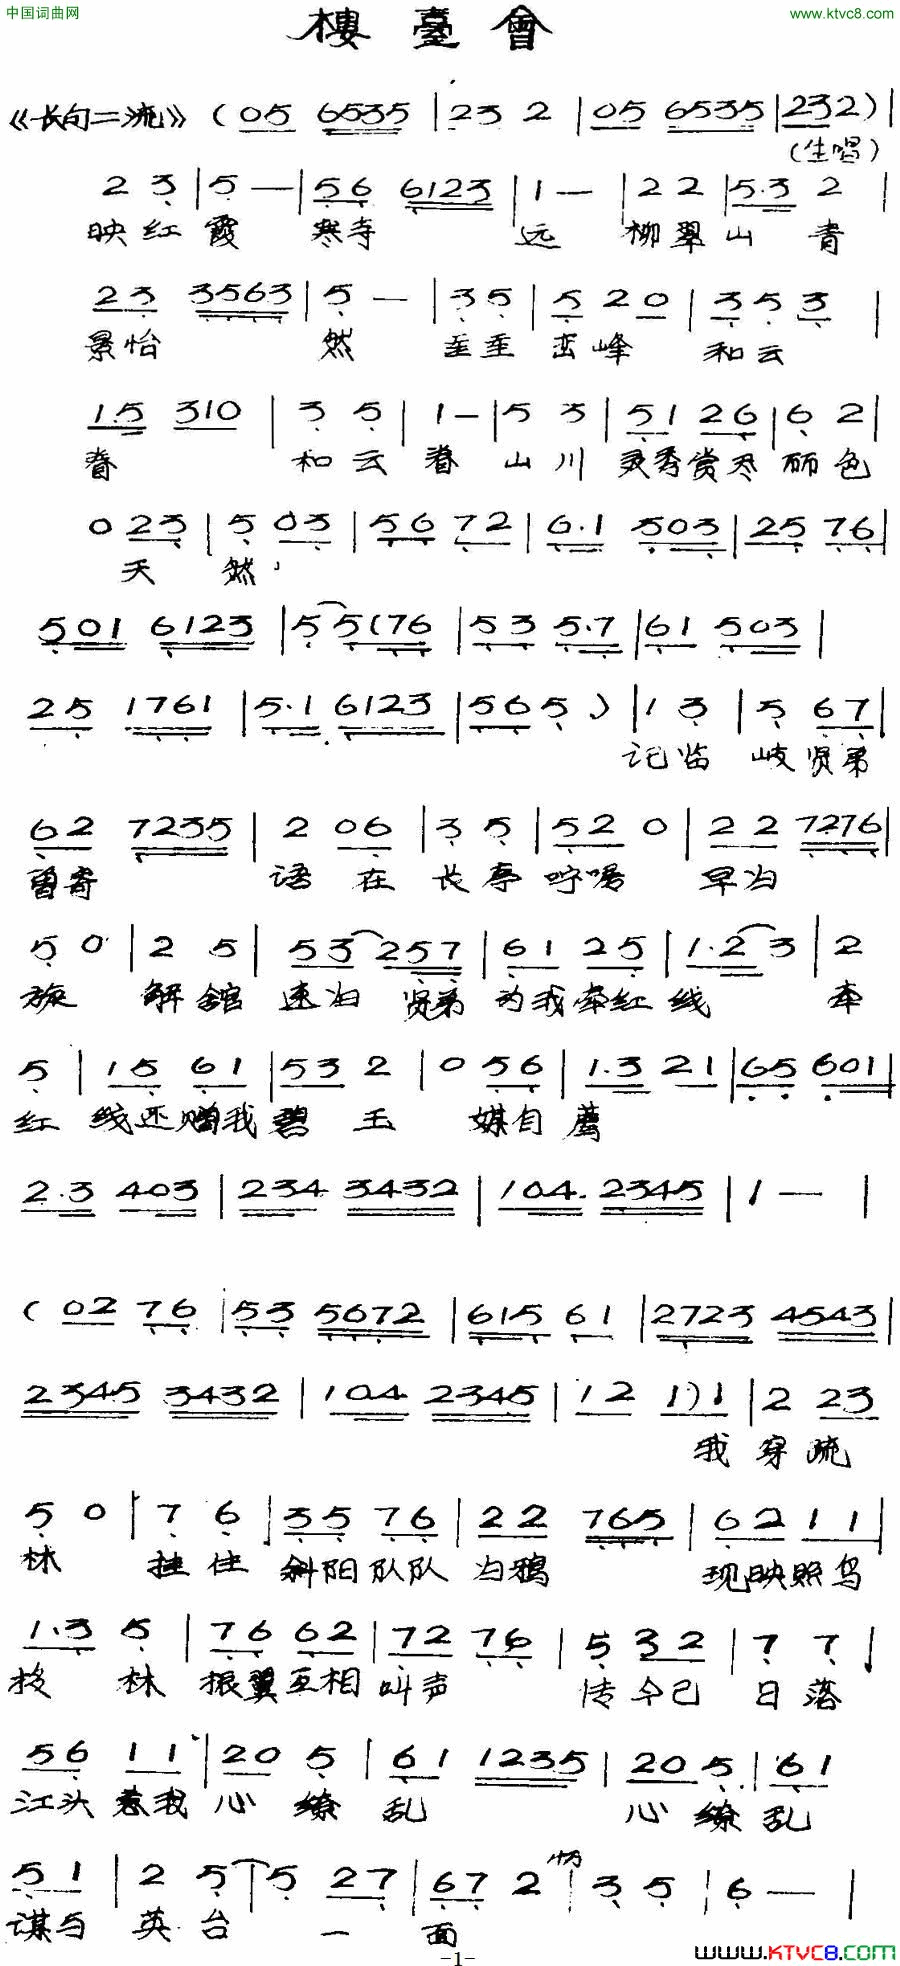 中国词曲网
www.ktvc8.com
樓臺會
《长句二流》 ( 05 6535 | 23 2 | 05 6535 | 232 ) |
(生唱)
2 3 | 5 — | 56 6123 | 1 — | 22 | 5·3 2 |
映红霞 寒寺 远 柳翠山 青
23 3563 | 5 — | 35 | 5 20 | 35 3 |
景怡 然 峦峰 和云
15 310 | 3 5 | 1 — | 5 3 | 51 26 | 6 2 |
脊 和云脊 山川 灵秀赏尽 丽色
0 23 | 5 03 | 56 72 | 6·1 503 | 25 76 |
天 然
501 6123 | 5 5(76 | 53 5·7 | 61 503 |
25 1761 | 5·1 6123 | 565 ) | 1 3 | 5 67 |
记临 岐贤弟
62 7235 | 2 06 | 3 5 | 52 0 | 22 7276 |
曾寄 语 在 长亭 咛嘱 早归
5 0 | 2 5 | 53 257 | 61 25 | 1·2 3 | 2
旋 解馆 速归 贤弟 为我牵红线 牵
5 | 15 61 | 53 2 | 0 56 | 1·3 21 | 65 601 |
红 线还赠我碧 玉 媒自 荐
2·3 403 | 234 3432 | 104 2345 | 1 — |
( 02 76 | 53 5672 | 615 61 | 2723 4543 |
2345 3432 | 104 2345 | 12 1)1 | 2 23
我 穿疏
5 0 | 7 6 | 35 76 | 22 765 | 62 11 |
林 挂住 斜阳队队 归鸦 现映照鸟
1·3 5 | 76 62 | 72 76 | 5 32 | 7 7 |
投 林 振翼互相 叫声 传今已 日落
56 11 | 20 5 | 61 1235 | 20 5 | 61
江头惹我 心 缭 乱 心 缭乱
51 | 2 5 | 5 27 | 67 2 | 3 5 | 6 — |
谋与 英台 一 面
-1-
www.KTVC8.COM